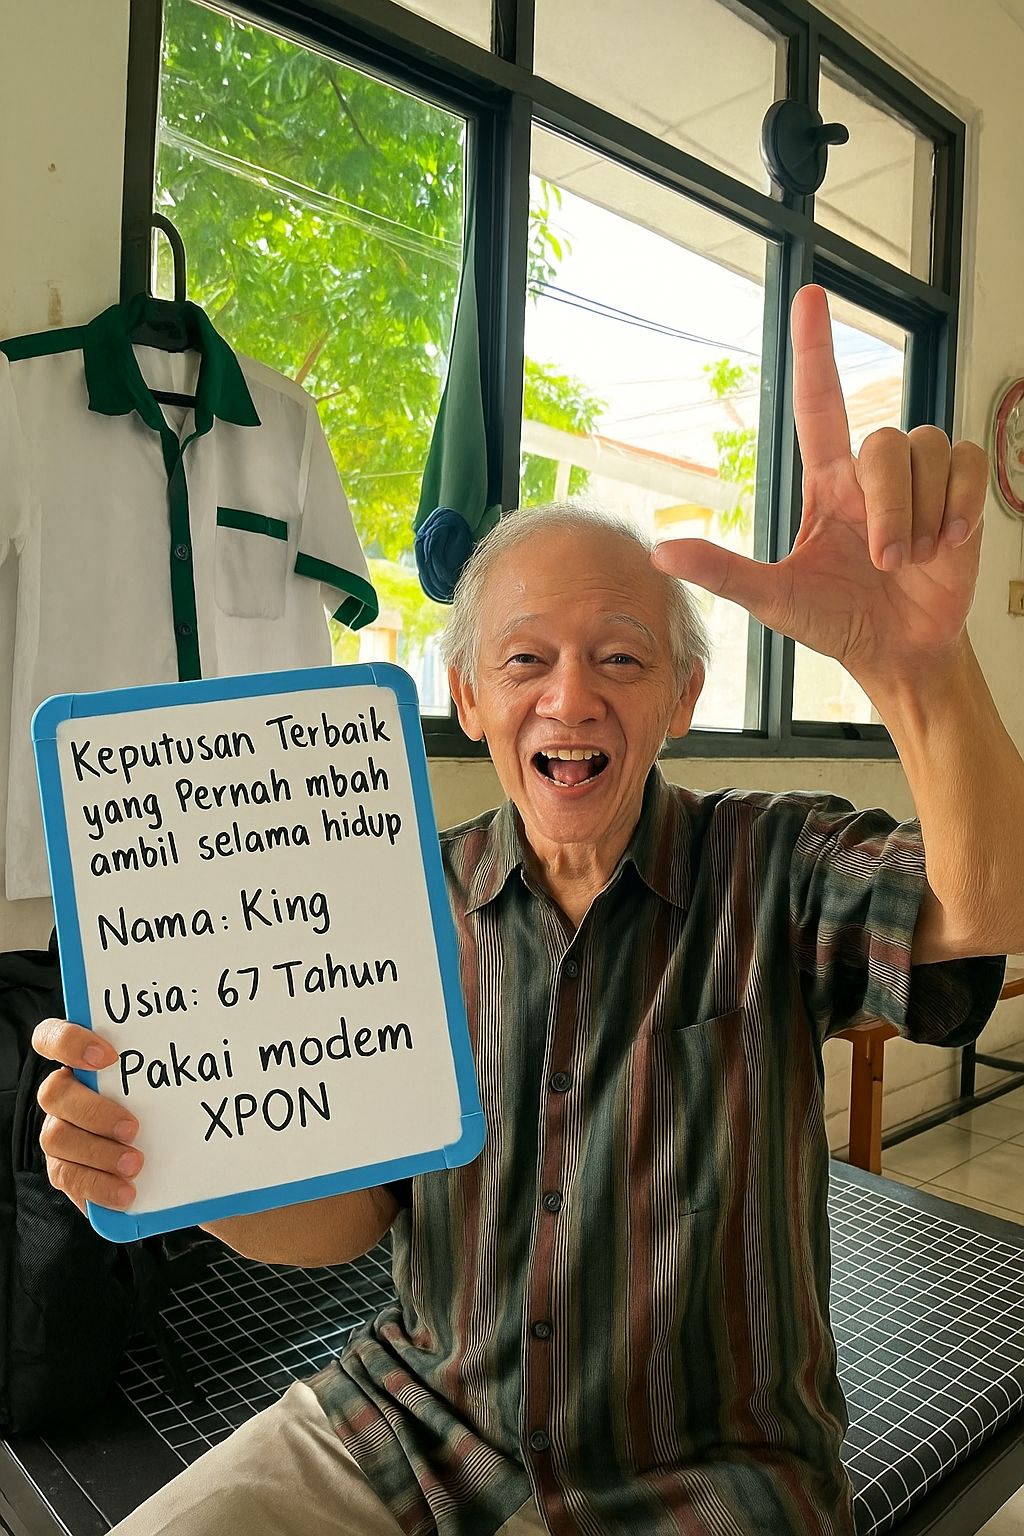 Keputusan Terbaik
yang Pernah mbah
ambil selama hidup
Nama: King
Usia: 67 Tahun
Pakai modem
XPON